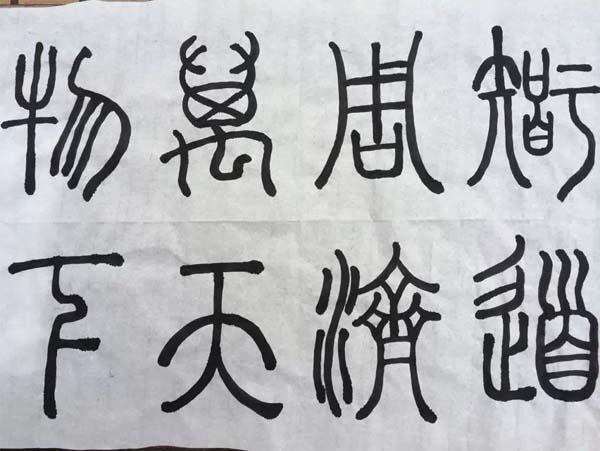 智周萬物
道濟天下